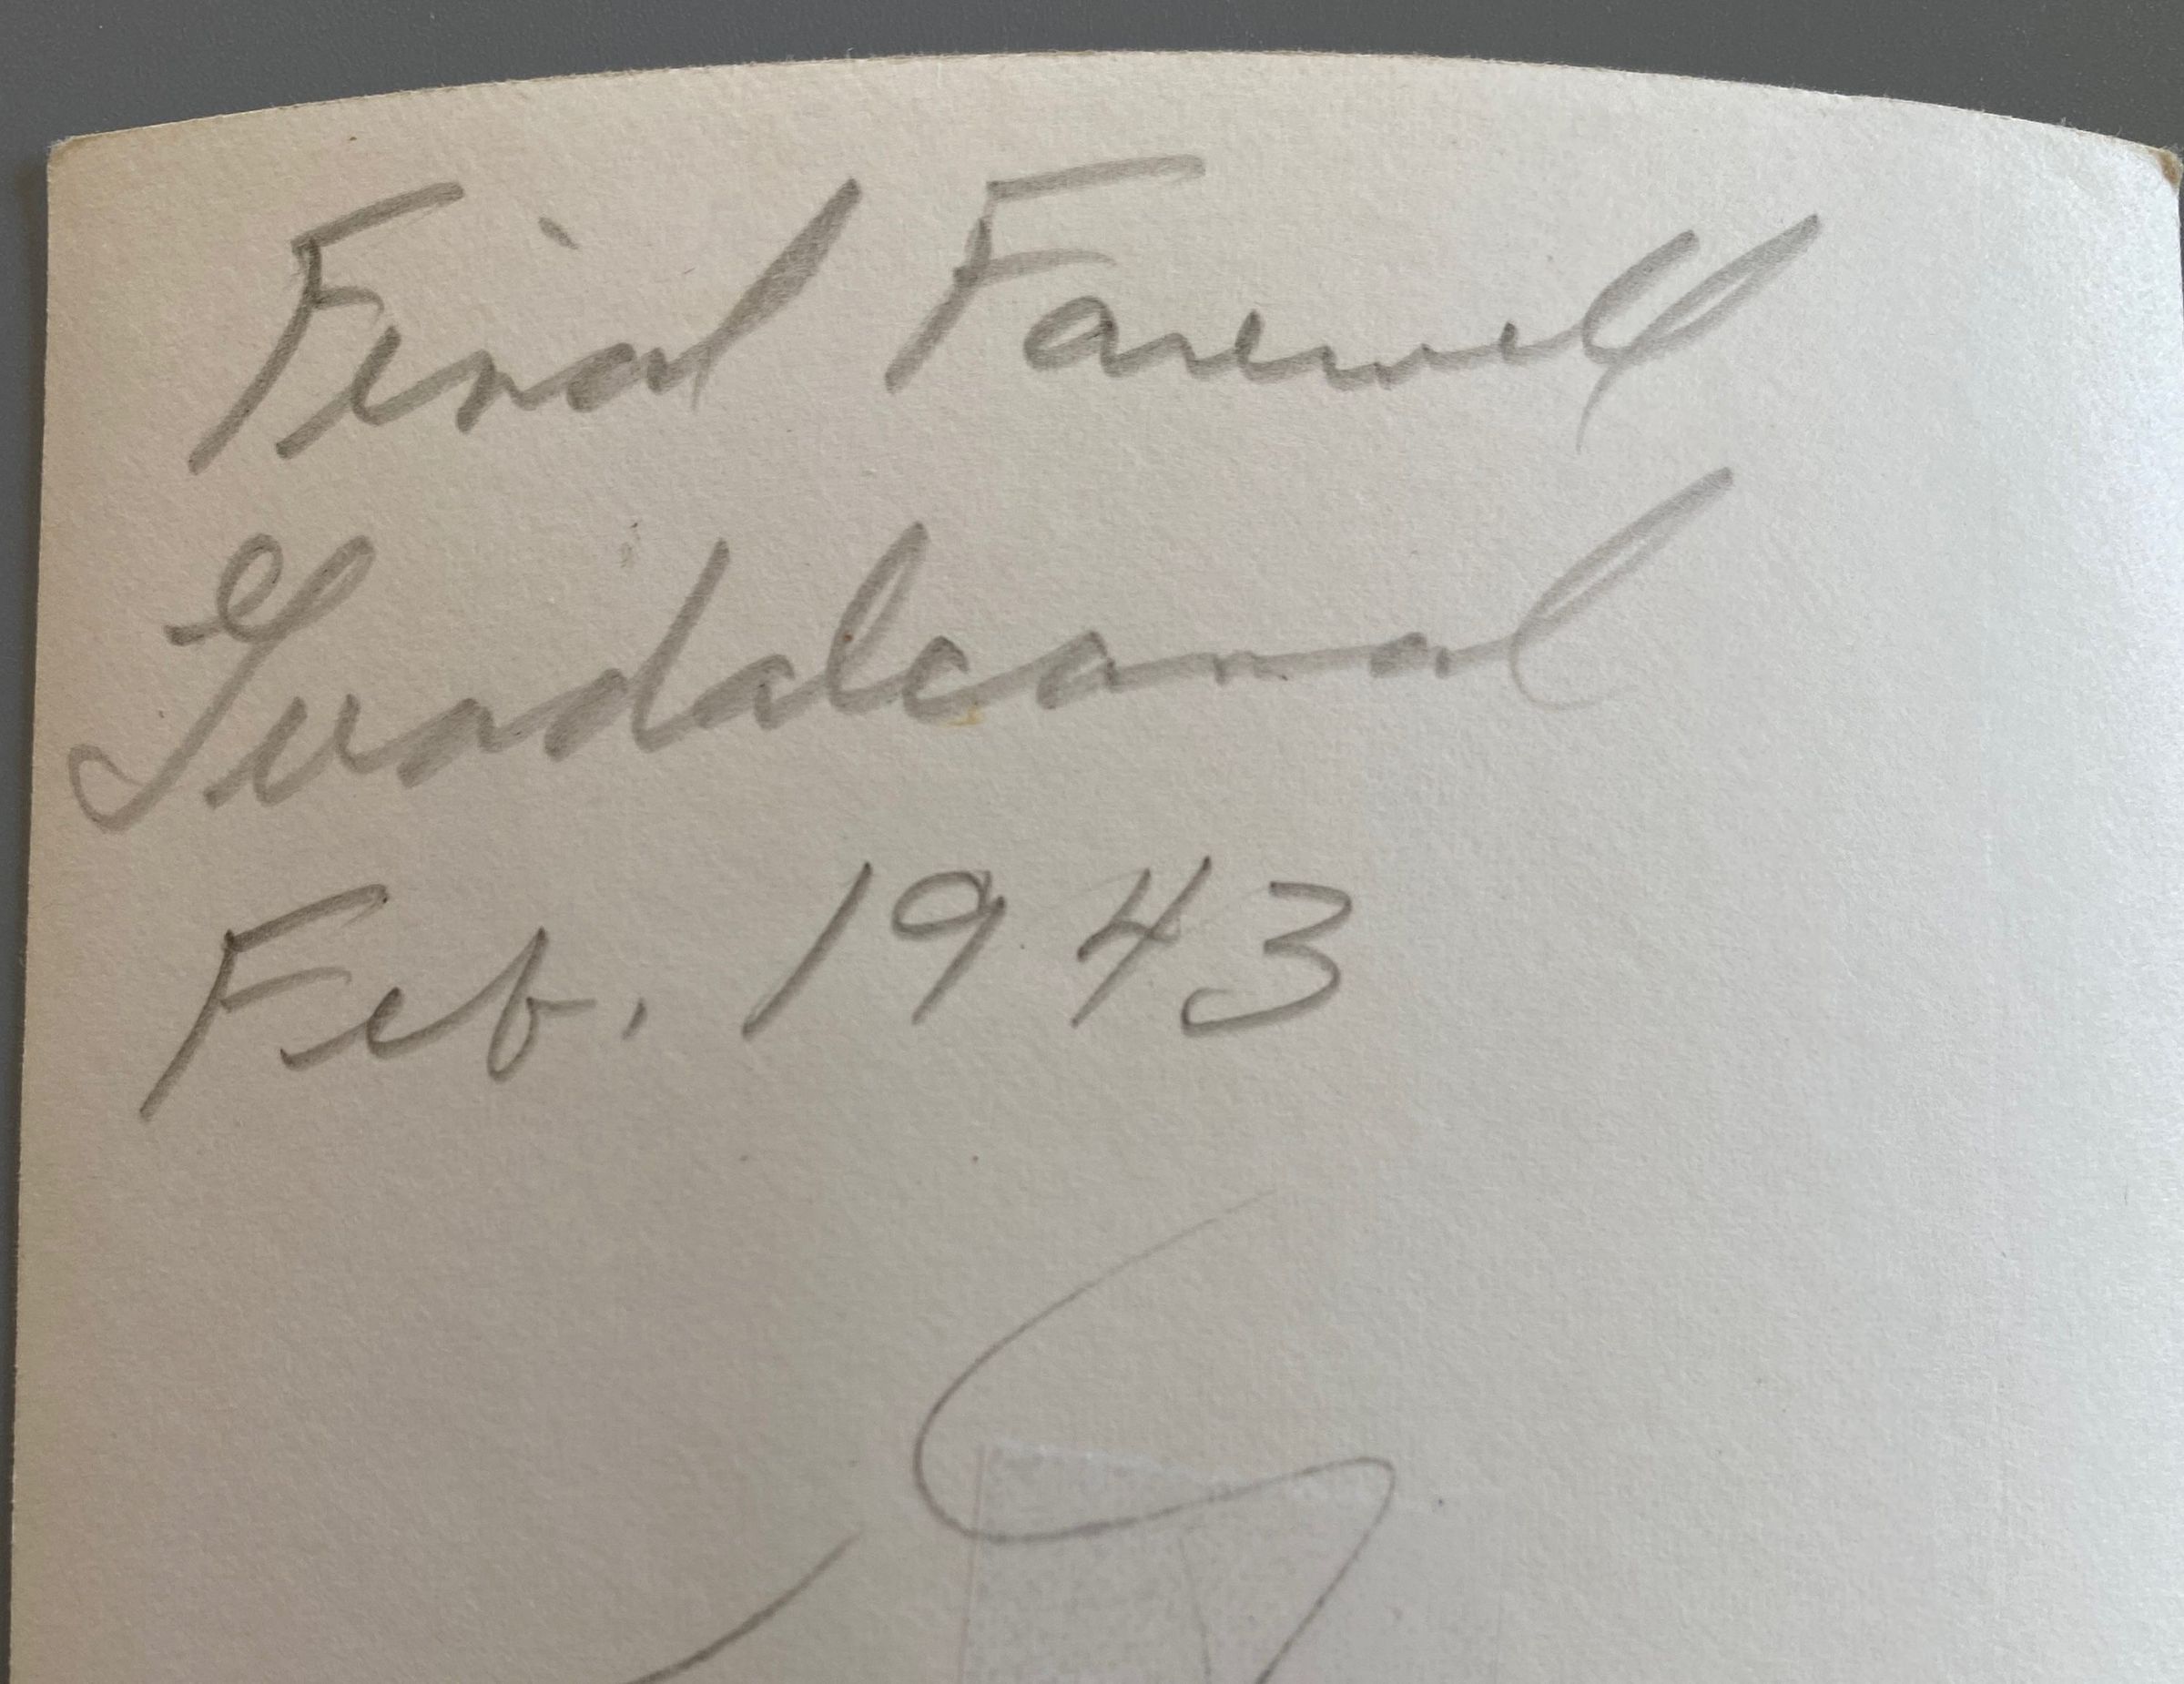 Final Farewell
Guadalcanal
Feb. 1943